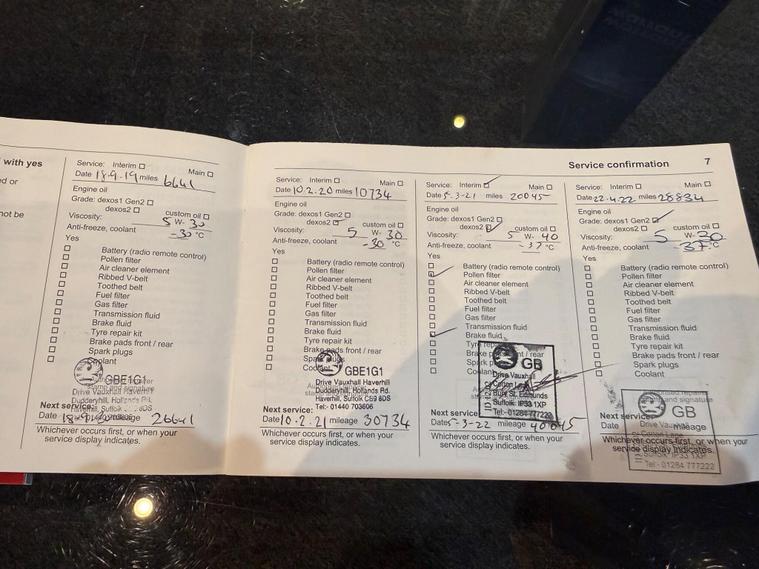 with yes
Service: Interim ☐ Main ☐
Date 18.9.19 miles 6641
Engine oil
Grade: dexos1 Gen2 ☐
dexos2 ☐ custom oil ☐
Viscosity: 5 W- 30
Anti-freeze, coolant -30 °C
Yes
☐ Battery (radio remote control)
☐ Pollen filter
☐ Air cleaner element
☐ Ribbed V-belt
☐ Toothed belt
☐ Fuel filter
☐ Gas filter
☐ Transmission fluid
☐ Brake fluid
☐ Tyre repair kit
☐ Brake pads front / rear
☐ Spark plugs
☐ Coolant
GBE1G1
Drive Vauxhall Haverhill
Dudderyhill, Hollands Rd.
Haverhill, Suffolk
Next service:
Date mileage 26641
Whichever occurs first, or when your
service display indicates.
Service: Interim ☐ Main ☐
Date 10.2.20 miles 10734
Engine oil
Grade: dexos1 Gen2 ☐
dexos2 ☐ custom oil ☐
Viscosity: 5 W- 30
Anti-freeze, coolant -30 °C
Yes
☐ Battery (radio remote control)
☐ Pollen filter
☐ Air cleaner element
☐ Ribbed V-belt
☐ Toothed belt
☐ Fuel filter
☐ Gas filter
☐ Transmission fluid
☐ Brake fluid
☐ Tyre repair kit
☐ Brake pads front / rear
☐ Spark plugs
☐ Coolant
GBE1G1
Drive Vauxhall Haverhill
Dudderyhill, Hollands Rd.
Haverhill, Suffolk CB9 8DS
Tel:- 01440 703606
Next service:
Date 10.2.21 mileage 30734
Whichever occurs first, or when your
service display indicates.
Service confirmation 7
Service: Interim ☐ Main ☐
Date 5-3-21 miles 20045
Engine oil
Grade: dexos1 Gen2 ☐
dexos2 ☐ custom oil ☐
Viscosity: 5 W- 40
Anti-freeze, coolant -37 °C
Yes
☐ Battery (radio remote control)
☐ Pollen filter
☐ Air cleaner element
☐ Ribbed V-belt
☐ Toothed belt
☐ Fuel filter
☐ Gas filter
☐ Transmission fluid
☐ Brake fluid
☐ Tyre
☐ Brake pads front / rear
☐ Spark
☐ Cool
GB
Drive Vauxhall
Bury St. Edmunds
Suffolk IP33 1XP
Tel:- 01284 777222
Next service:
Date 5-3-22 mileage 40045
Whichever occurs first, or when your
service display indicates.
Service: Interim ☐ Main ☐
Date 22.4.22 miles 28834
Engine oil
Grade: dexos1 Gen2 ☐
dexos2 ☐ custom oil ☐
Viscosity: 5 W- 30
Anti-freeze, coolant -37 °C
Yes
☐ Battery (radio remote control)
☐ Pollen filter
☐ Air cleaner element
☐ Ribbed V-belt
☐ Toothed belt
☐ Fuel filter
☐ Gas filter
☐ Transmission fluid
☐ Brake fluid
☐ Tyre repair kit
☐ Brake pads front / rear
☐ Spark plugs
☐ Coolant
GB
Drive Vauxhall
Suffolk IP33 1XP
Tel:- 01284 777222
Next service:
Date mileage
Whichever occurs first, or when your
service display indicates.